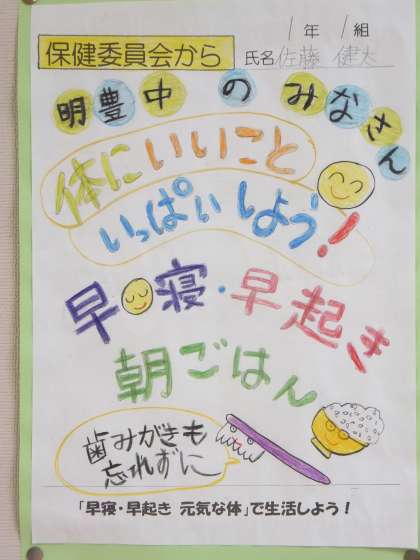 1年 1組
保健委員会から
氏名 佐藤 健太
明豊中のみなさん
体にいいこと
いっぱいしよう!
早寝・早起き
朝ごはん
歯みがきも
忘れずに
「早寝・早起き 元気な体」で生活しよう!